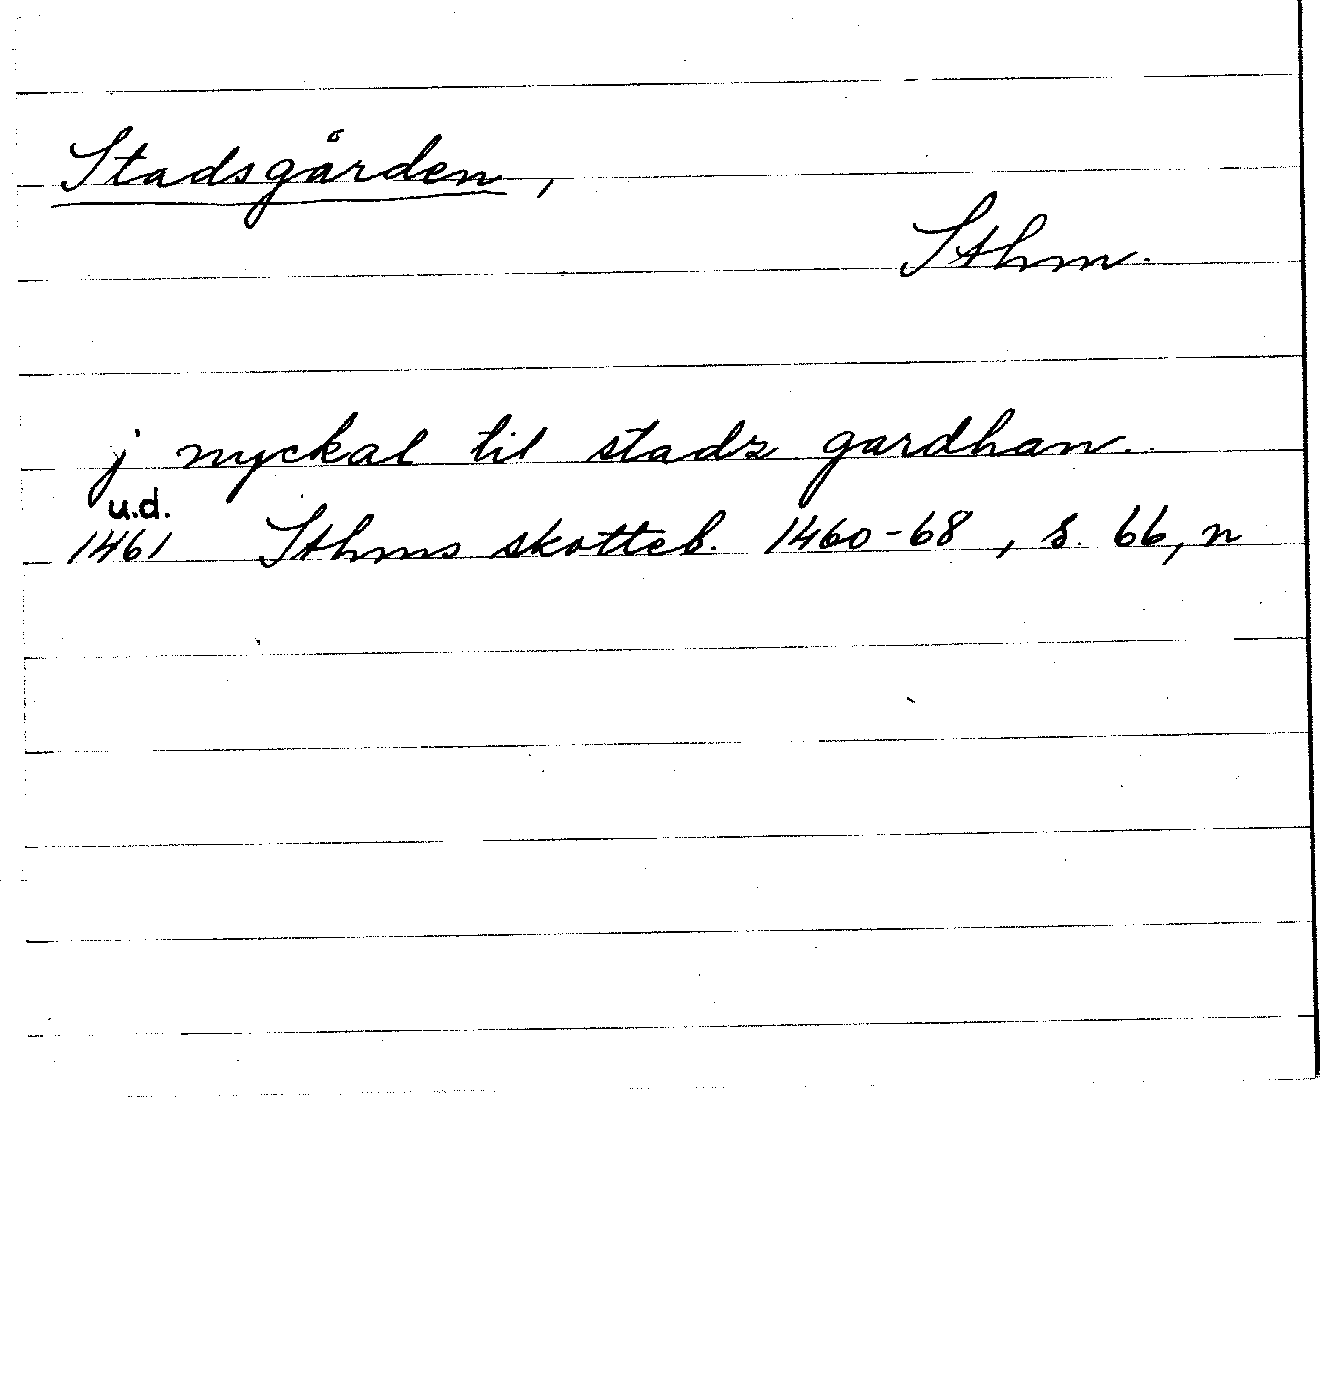 Stadsgården,
Sthm.
j nyckal til stadz gardhan.
u.d.
1461 Sthms skotteb. 1460-68, s. 66, n